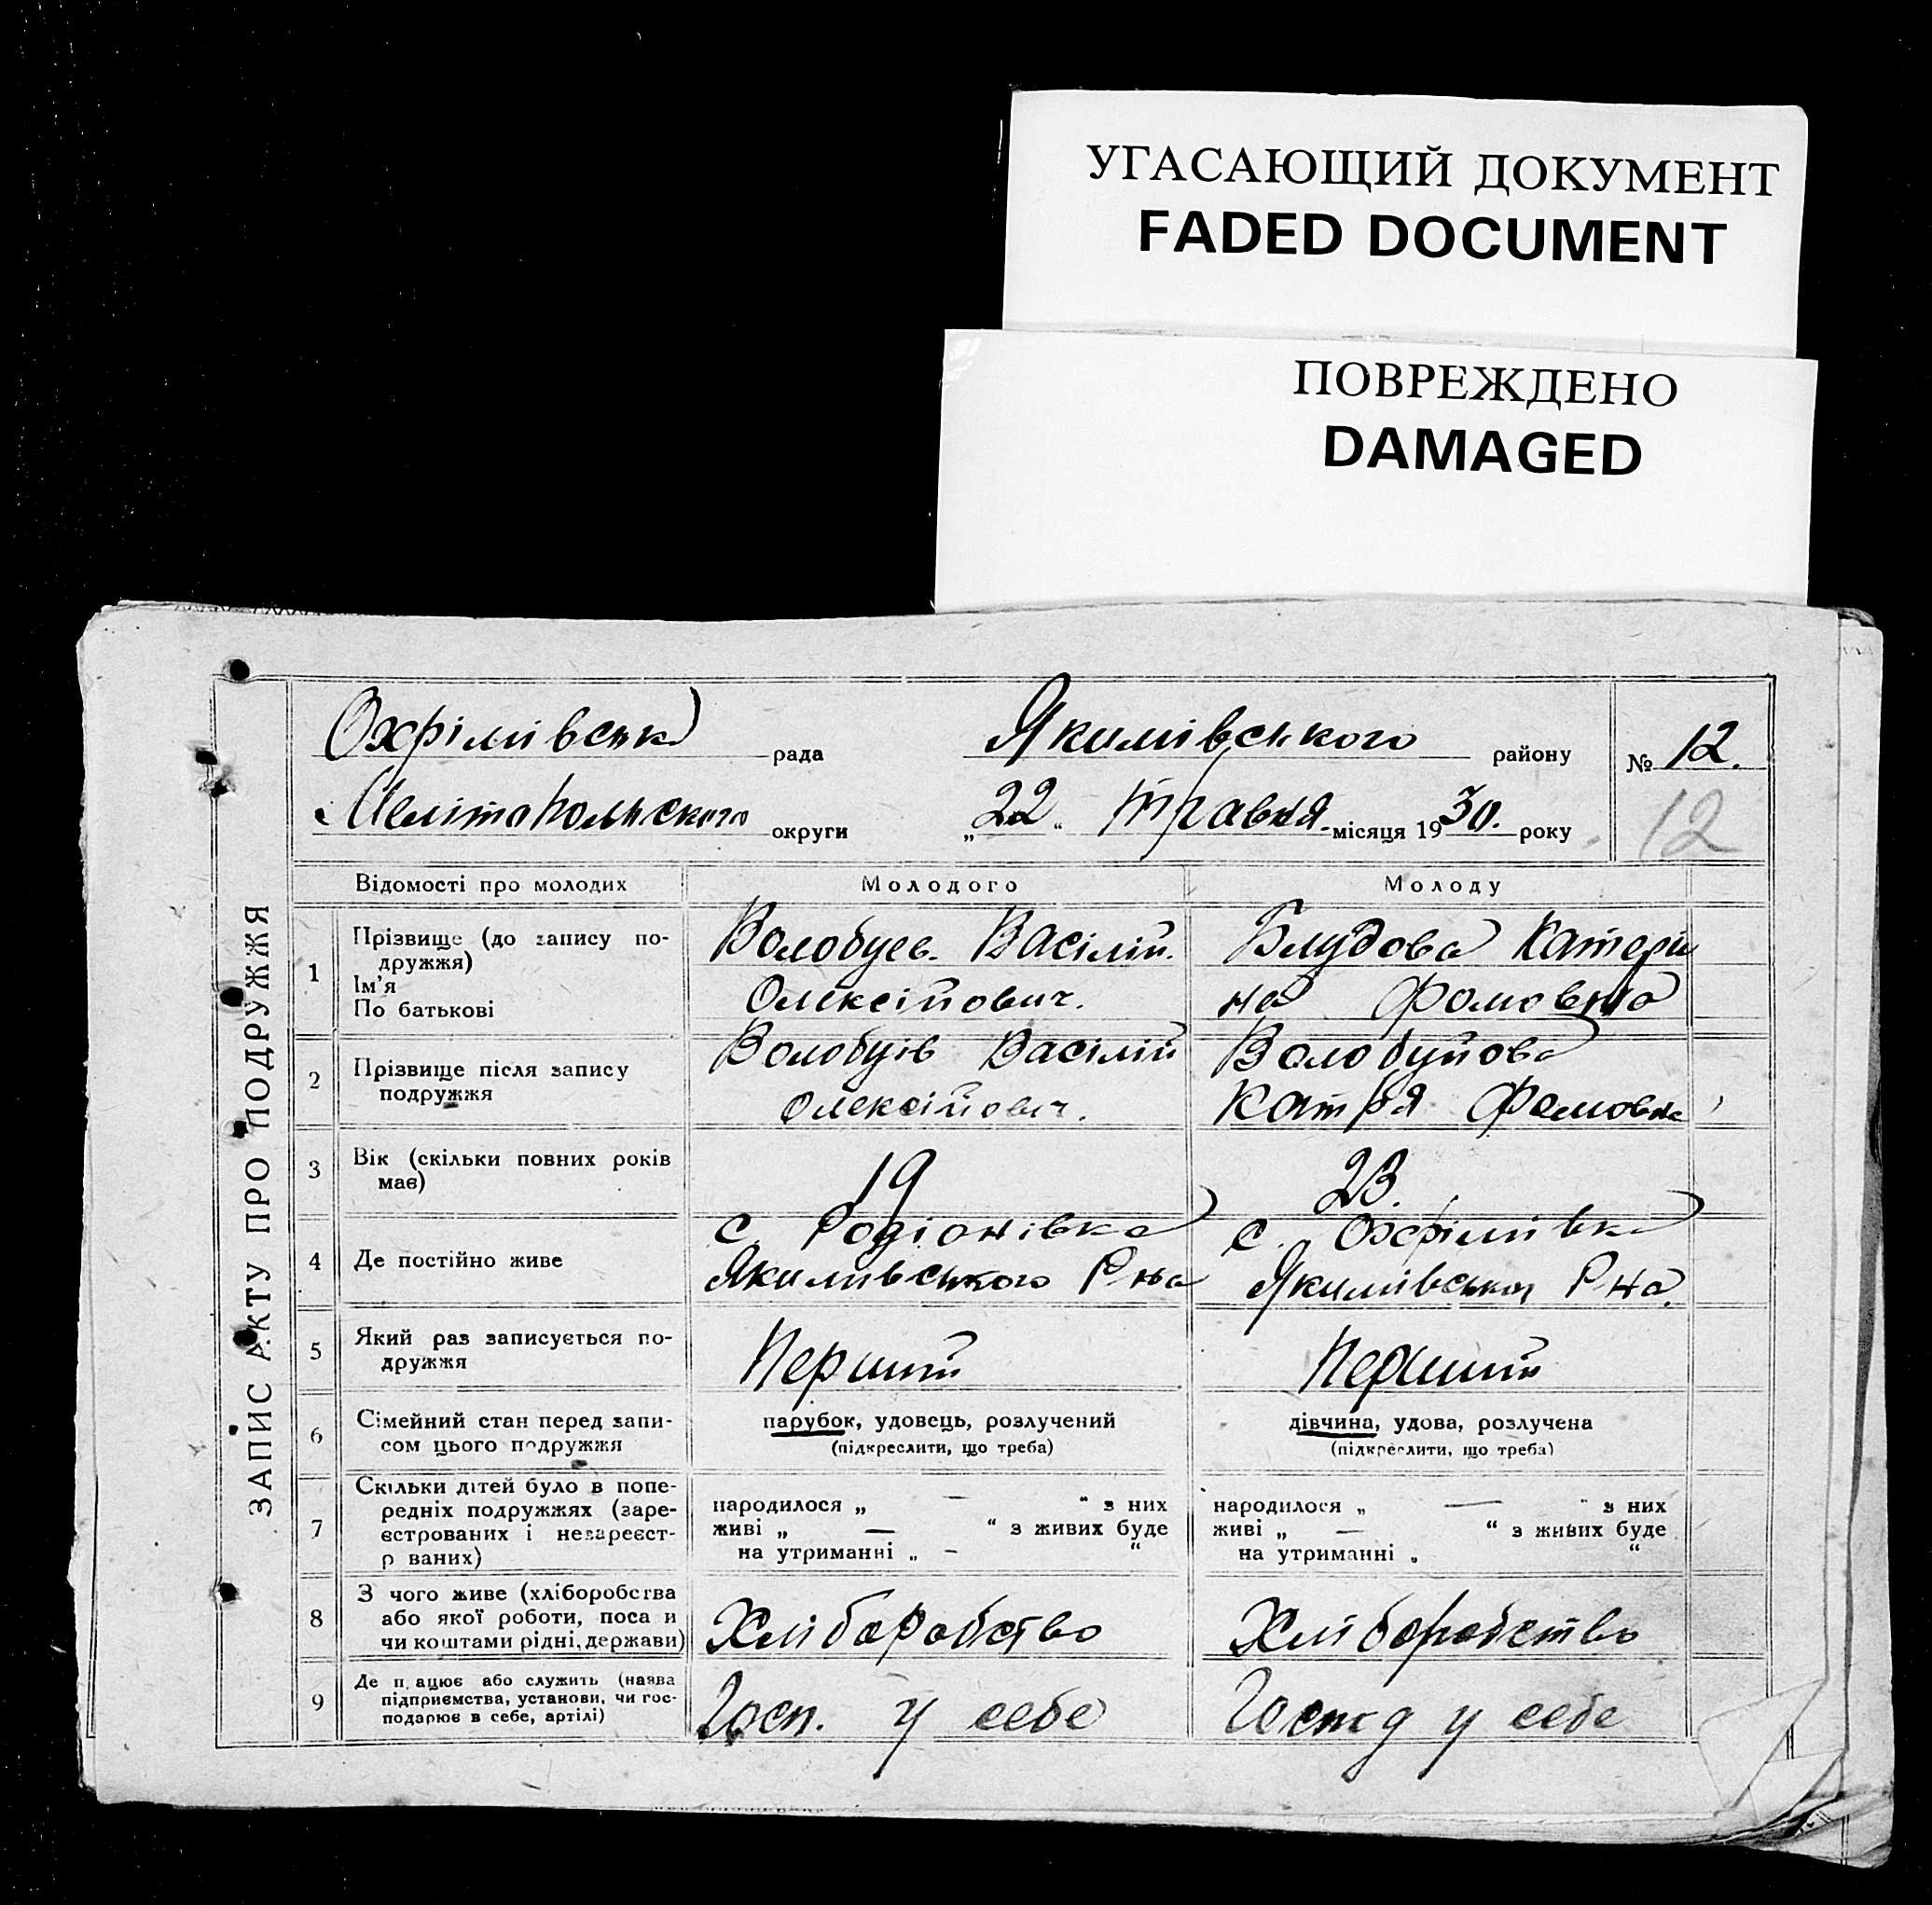 УГАСАЮЩИЙ ДОКУМЕНТ
FADED DOCUMENT
ПОВРЕЖДЕНО
DAMAGED
ЗАПИС АКТУ ПРО ПОДРУЖЖЯ
Охрімівська рада Якимівського району № 12.
Мелітопольского округи „22“ травня місяця 1930. року 12
Відомості про молодих Молодого Молоду
1
Прізвище (до запису по-
дружжя)
Ім'я
По батькові
Волобуєв. Васілій.
Олексійович.
Блудова Катери
на Фомовна
2
Прізвище після запису
подружжя
Волобуїв Васілій
Олексійович.
Волобуйова
Катря Фомовна
3
Вік (скільки повних років
має)
19
23.
4
Де постійно живе
с. Родіонівка
Якимівського Р-на
с. Охрімівка
Якимівського Р-на.
5
Який раз записується по-
дружжя
Перший
Перший
6
Сімейний стан перед запи-
сом цього подружжя
парубок, удовець, розлучений
(підкреслити, що треба)
дівчина, удова, розлучена
(підкреслити, що треба)
7
Скільки дітей було в попе-
редніх подружжях (заре-
єстрованих і незареєст-
р ваних)
народилося „ — “ з них
живі „ — “ з живих буде
на утриманні „ - “
народилося „ — “ з них
живі „ — “ з живих буде
на утриманні „ “
8
З чого живе (хліборобства
або якої роботи, поса и
чи коштами рідні, держави)
Хліборобство
Хліборобство
9
Де п ацює або служить (назва
підприємства, установи, чи гос-
подарює в себе, артілі)
Госп. у себе
Господ у себе